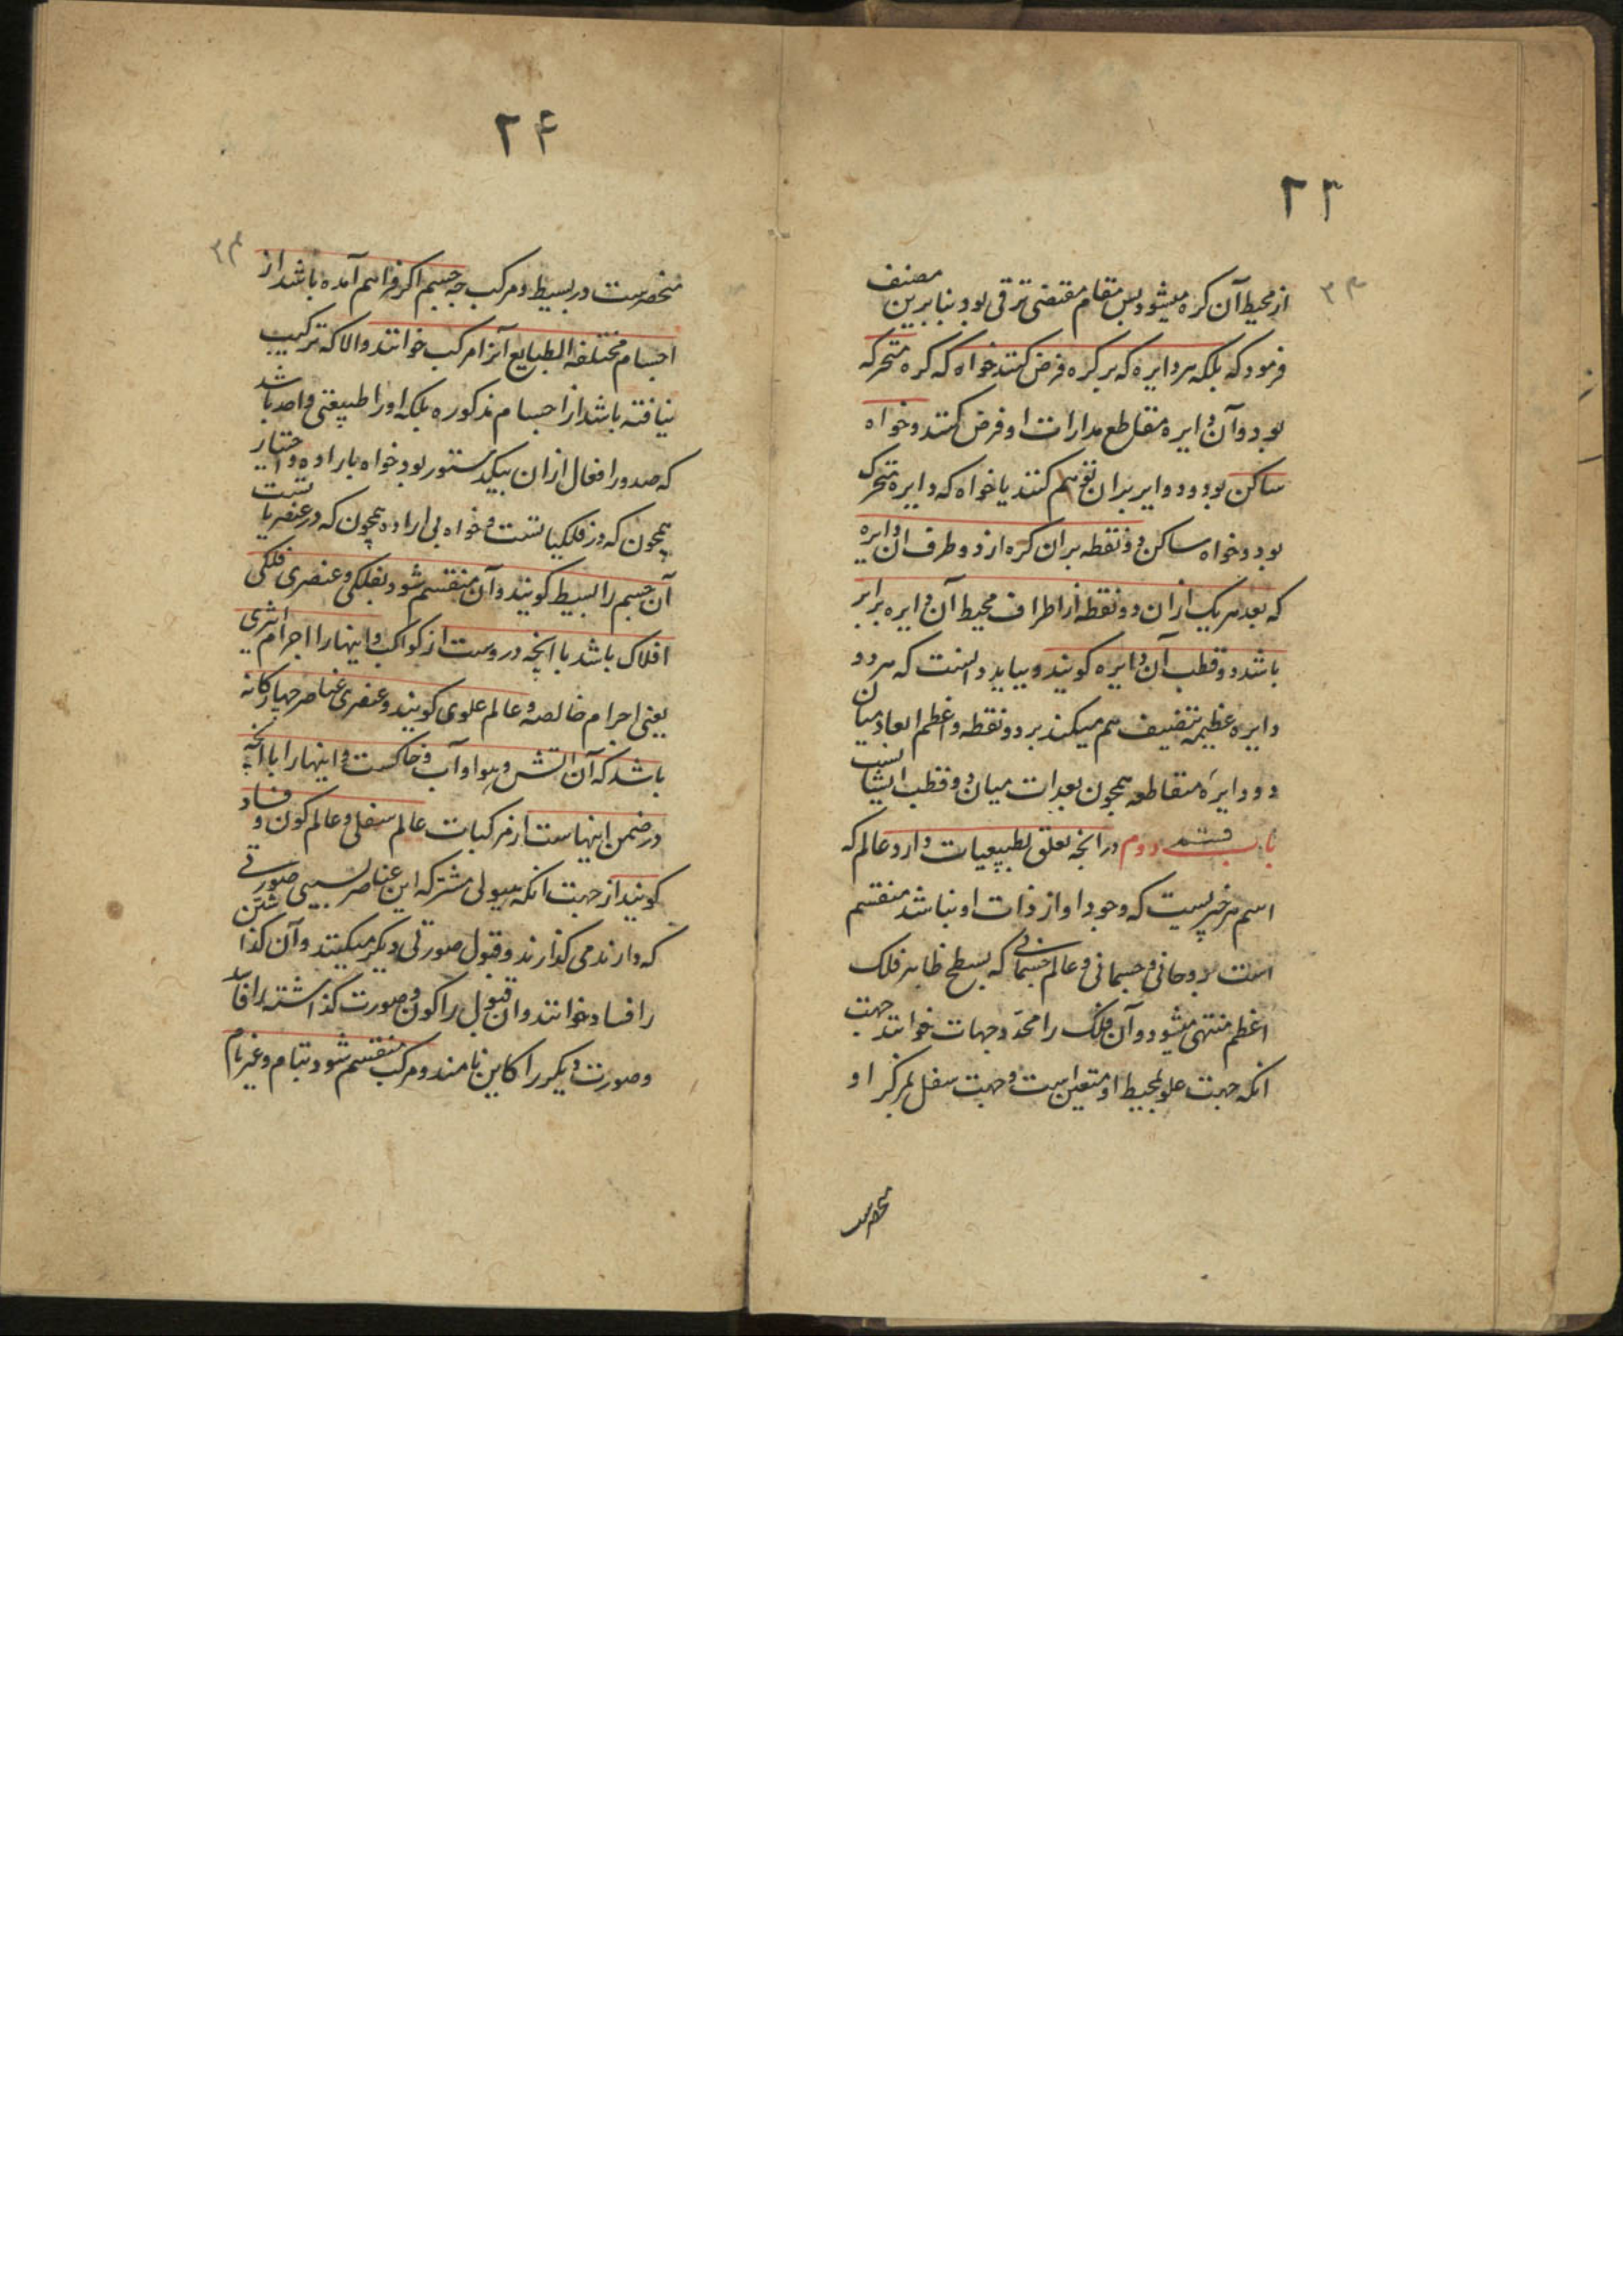 ۲۳
۲۳
از محیط آن کره میشود پس مقام مقتضی ترقی بود بنابرین مصنف
فرمود که بلکه هر دایره که بر کره فرض کنند خواه که کره متحرکه
بود و آن دایره مقاطع مدارات او فرض کنند و خواه
ساکن بود و دوایر بران توهم کنند یا خواه که دایره متحرک
بود و خواه ساکن دو نقطه بران کره از دو طرف ان دایره
که بعد هر یک ازان دو نقطه از اطراف محیط آن دایره برابر
باشد دو قطب آن دایره کویند و بباید دانست که هر دو
دایره عظیمه تنصیف هم میکنند بر دو نقطه و اعظم ابعاد میان
دو دایرهٔ متقاطعه همچون بعدات میان دو قطب ایشانست
باب قسم دوم در انچه تعلق بطبیعیات دارد عالم که
اسم هر چیزیست که وجود او از ذات او نباشد منقسم
است بروحانی و جسمانی و عالم جسمانی که بسطح ظاهر فلک
اعظم منتهی میشود و آن فلک را محدّد جهات خوانند جهت
انکه جهت علو بمحیط او متعین است و جهت سفل بمرکز او
منحصرست
۲۴
۲۴
منحصرست در بسیط و مرکب چه جسم اکر فراهم آمده باشد از
اجسام مختلفه الطبایع آنرا مرکب خوانند و الا که ترکیب
نیافته باشد از اجسام مذکوره بلکه او را طبیعتی واحد باشد
که صدور افعال ازان بیک دستور بود خواه باراده و اختیار
همچون که در فلکیاتست و خواه بی اراده همچون که در عنصریاتست
آن جسم را بسیط کویند و آن منقسم شود بفلکی و عنصری فلکی
افلاک باشد با انچه دروست از کواکب و اینها را اجرام اثیری
یعنی اجرام خالصه و عالم علوی کویند و عنصری عناصر چهارکانه
باشد که آن اتش و هوا و آب و خاکست و اینها را با انچه
در ضمن اینهاست از مرکبات عالم سفلی و عالم کون و فساد
کویند از جهت انکه هیولی مشترکه این عناصر بسببی صورتی
که دارند می کذارند و قبول صورتی دیکر میکنند و آن کذاشتن
را فساد خوانند و ان قبول را کون و صورت کذاشته را فاسد
و صورت دیکر را کاین نامند و مرکب منقسم شود بتام و غیر تام